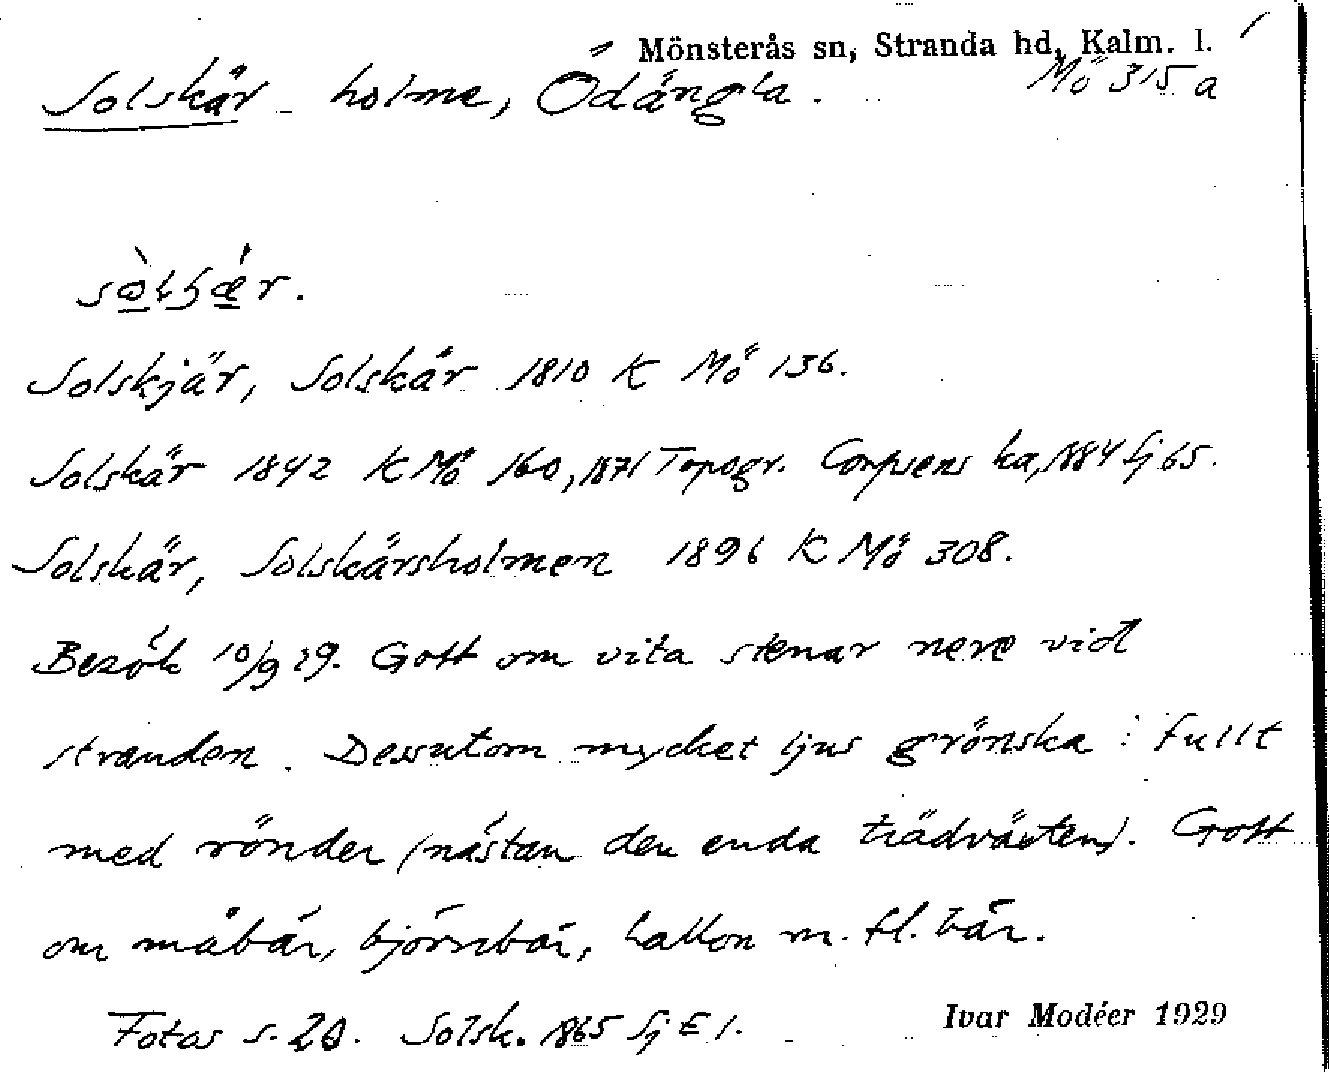 Mönsterås sn, Stranda hd, Kalm. l.
Solskär holme, Ödängla. Mö 315 a
Solskjär, Solskär 1810 K Mö 136.
Solskär 1842 K Mö 160, 1871 Topogr. Corpsens ka, 1884 Sj 65.
Solskär, Solskärsholmen 1896 K Mö 308.
Besök 10/9 29. Gott om vita stenar nere vid
stranden. Dessutom mycket ljus grönska: fullt
med rönder (nästan den enda trädväxten). Gott
om måbär, björnbär, hallon m. fl. bär.
Fotos s. 20. Solsk. 1865 Sj E 1.
Ivar Modéer 1929